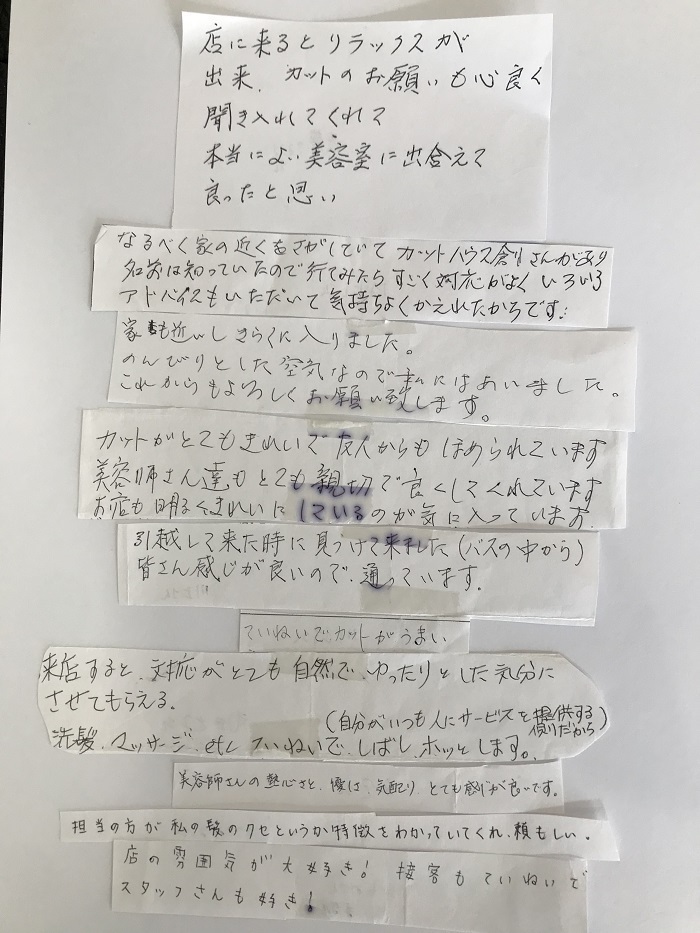 店に来るとリラックスが
出来、カットのお願いも心良く
聞き入れてくれて
本当によい美容室に出合えて
良ったと思い
なるべく家の近くをさがしていて カットハウス創さんがあり
名前は知っていたので行てみたら すごく対応がよく いろいろ
アドバイスもいただいて 気持ちよくかえれたからです。
家も近いしきらくに入りました。
のんびりとした空気なので私にはあいました。
これからもよろしくお願い致します。
カットがとてもきれいで友人からもほめられています
美容師さん達もとても親切で良くしてくれています
お店も明るくきれいにしているのが気に入っています
引越して来た時に見つけて来ました(バスの中から)
皆さん感じが良いので、通っています。
ていねいでカットがうまい
来店すると、対応がとても自然で、ゆったりとした気分に
させてもらえる。
(自分がいつも人にサービスを提供する
側だから)
洗髪、マッサージ、etc ていねいで、しばし、ホッとします。
美容師さんの熱心さと、優しさ、気配り、とても感じが良いです。
担当の方が私の髪のクセというか特徴をわかっていてくれ、頼もしい。
店の雰囲気が大好き! 接客もていねいで
スタッフさんも好き!